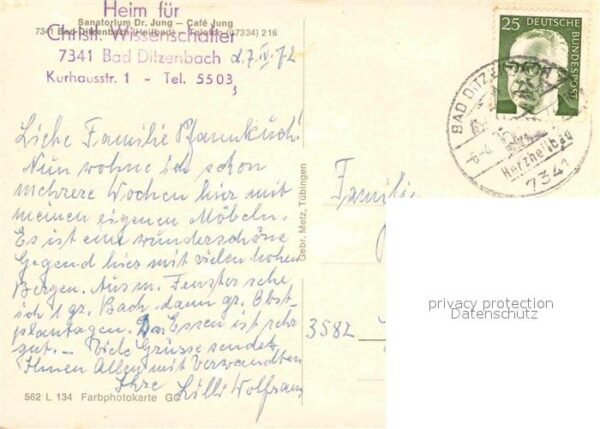 Heim für
Sanatorium Dr. Jung – Café Jung
7341 Bad Ditzenbach (Heilbad) – Telefon (07334) 216
Christl. Wissenschafter
7341 Bad Ditzenbach d. 7. IV. 72
Kurhausstr. 1 - Tel. 5503
3
Liebe Familie Pfannkuch!
Nun wohne ich schon
mehrere Wochen hier mit
meinen eigenen Möbeln.
Es ist eine wunderschöne
Gegend hier mit vielen hohen
Bergen. Aus m. Fenster sehe
ich 1 gr. Bach, dann gr. Obst-
plantagen. Das Essen ist sehr
gut. – Viele Grüsse sendet
Ihnen Allen mit Verwandten
Ihre Lilli Wolfram
562 L 134 Farbphotokarte
Gebr. Metz, Tübingen
25 DEUTSCHE BUNDESPOST
BAD DITZENBACH
Herzheilbad
7341
Familie
3582
privacy protection
Datenschutz